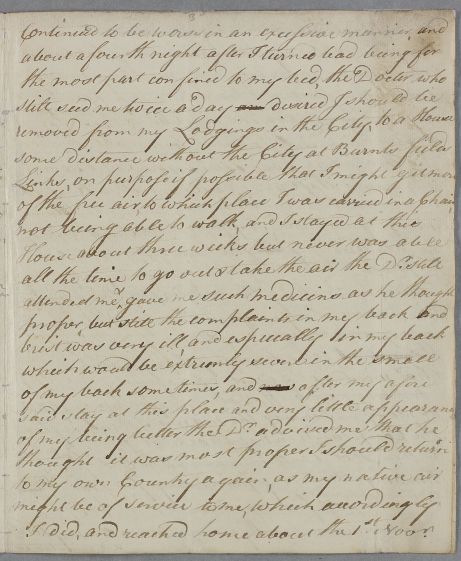 Continued to be worse in an excessive manner and
about a fourth night after I turned bad being for
the most part confined to my bed, the Docter who
still seed me twice a day desired I should be
removed from my Lodgings in the City, to a House
some distance without the City at Burnts fields
Links, on purpose if possible that I might get more
of the free air, to which place I was carried in a Chair
not being able to walk, and I stayed at this
House about three wicks but never was able
all the time to go out & take the air the Dr. still
attended me, gave me such medicins as he thought
proper, but still the complaints in my back and
brist was very ill, and especially in my back
which would be extremly severe in the small
of my back some times, and after my afore
said stay at this place and very little appearance
of my being better the Dr. advised me that he
thought it was most proper I should return
to my own Country again, as my native air
might be of service to me, which accordingly
I did, and reached home about the 1st Novr.